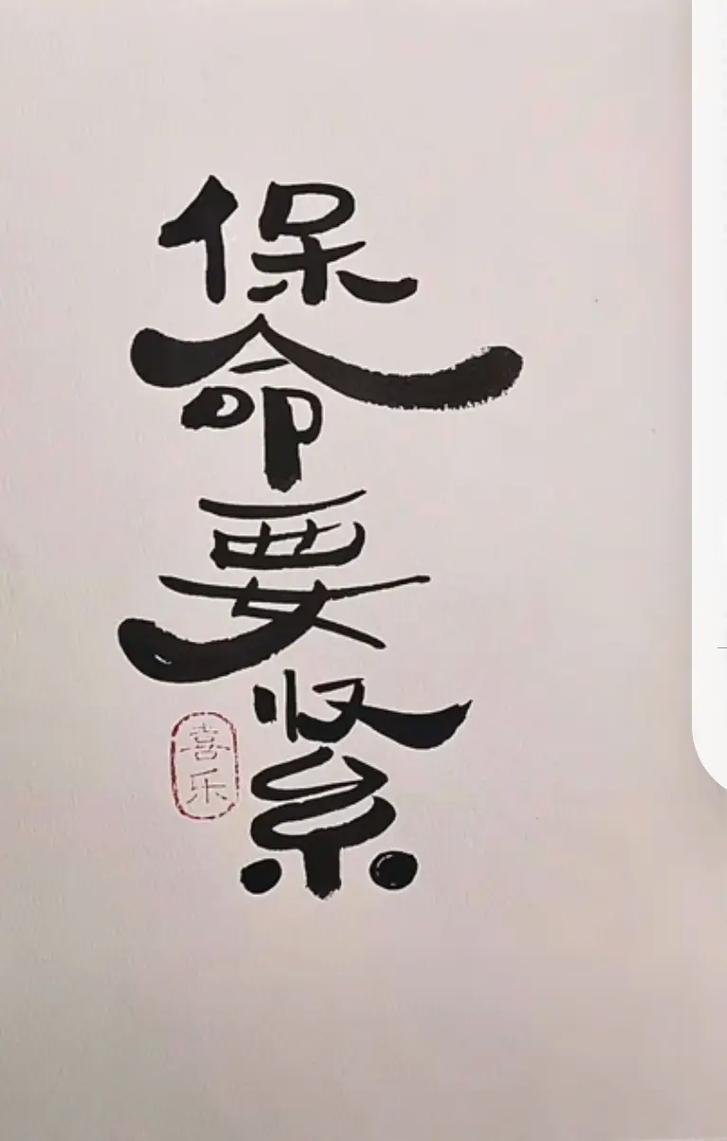 保命要紧
喜乐